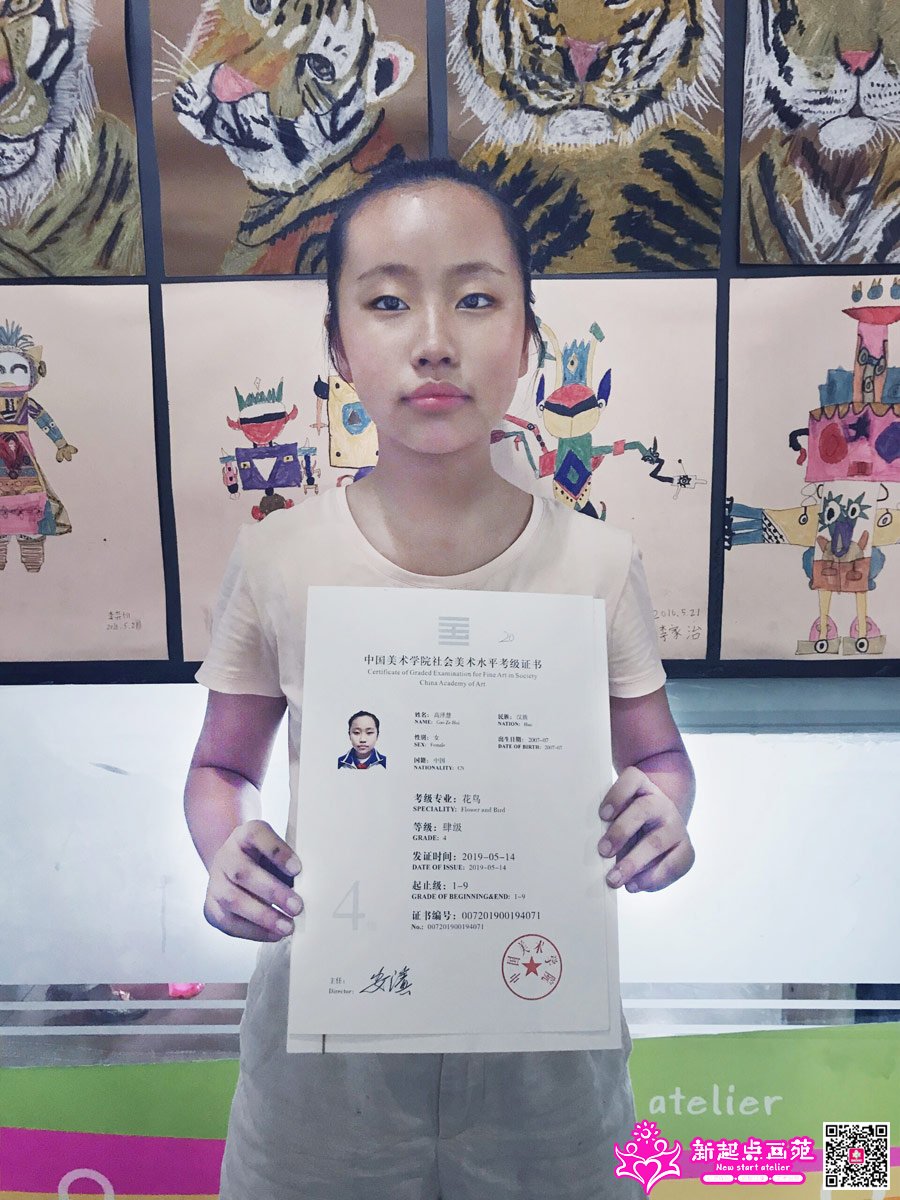 李芸归
2016.5.21
2016.5.21
李家冶
20
中国美术学院社会美术水平考级证书
Certificate of Graded Examination for Fine Art in Society
China Academy of Art
姓名: 高泽慧 民族: 汉族
NAME: Gao Ze Hui NATION: Han
性别: 女 出生日期: 2007-07
SEX: Female DATE OF BIRTH: 2007-07
国籍: 中国
NATIONALITY: CN
考级专业: 花鸟
SPECIALITY: Flower and Bird
等级: 肆级
GRADE: 4
发证时间: 2019-05-14
DATE OF ISSUE: 2019-05-14
起止级: 1-9
GRADE OF BEGINNING&END: 1-9
4
证书编号: 007201900194071
No.: 007201900194071
主任:
Director:
中国美术学院
atelier
新起点画苑
New start atelier